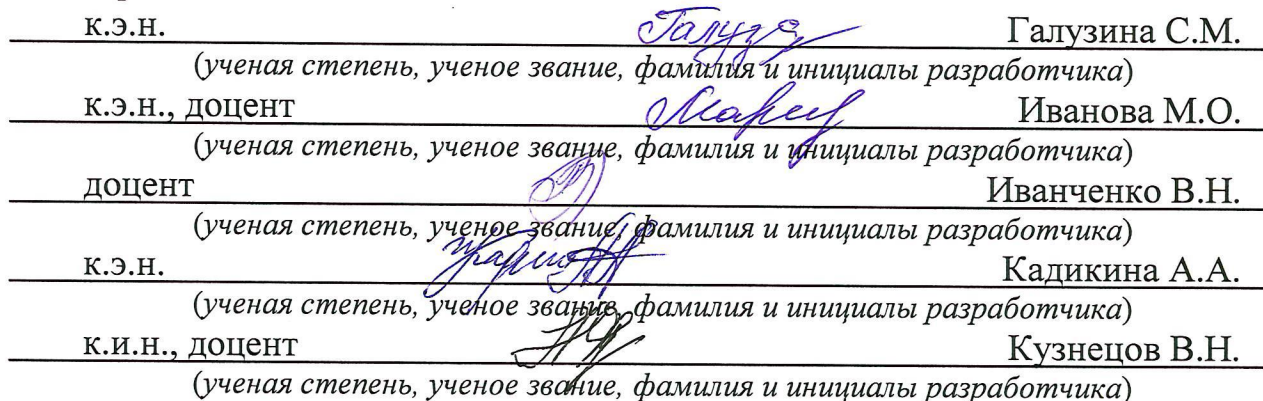 к.э.н. Галузина С.М.
(ученая степень, ученое звание, фамилия и инициалы разработчика)
к.э.н., доцент Иванова М.О.
(ученая степень, ученое звание, фамилия и инициалы разработчика)
доцент Иванченко В.Н.
(ученая степень, ученое звание, фамилия и инициалы разработчика)
к.э.н. Кадикина А.А.
(ученая степень, ученое звание, фамилия и инициалы разработчика)
к.и.н., доцент Кузнецов В.Н.
(ученая степень, ученое звание, фамилия и инициалы разработчика)